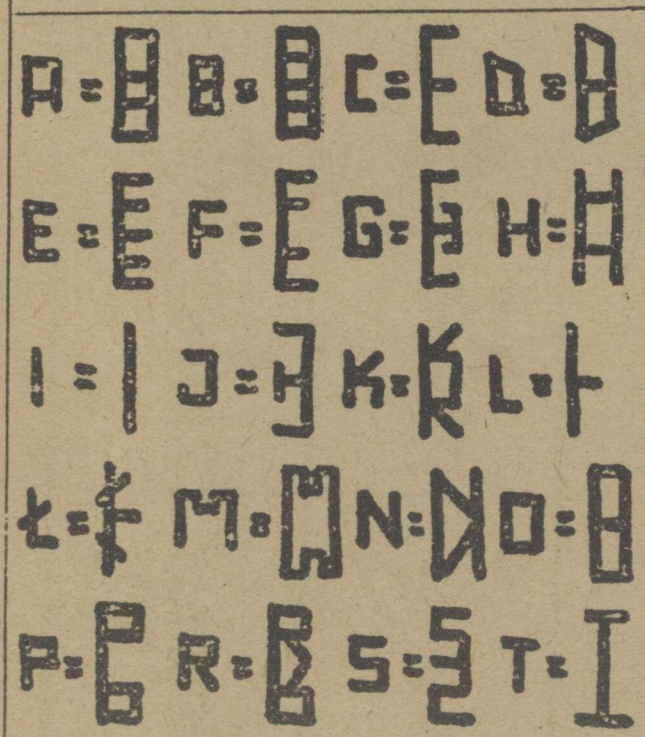 A = B = C = D =
E = F = G = H =
I = J = K = L =
Ł = M = N = O =
P = R = S = T =